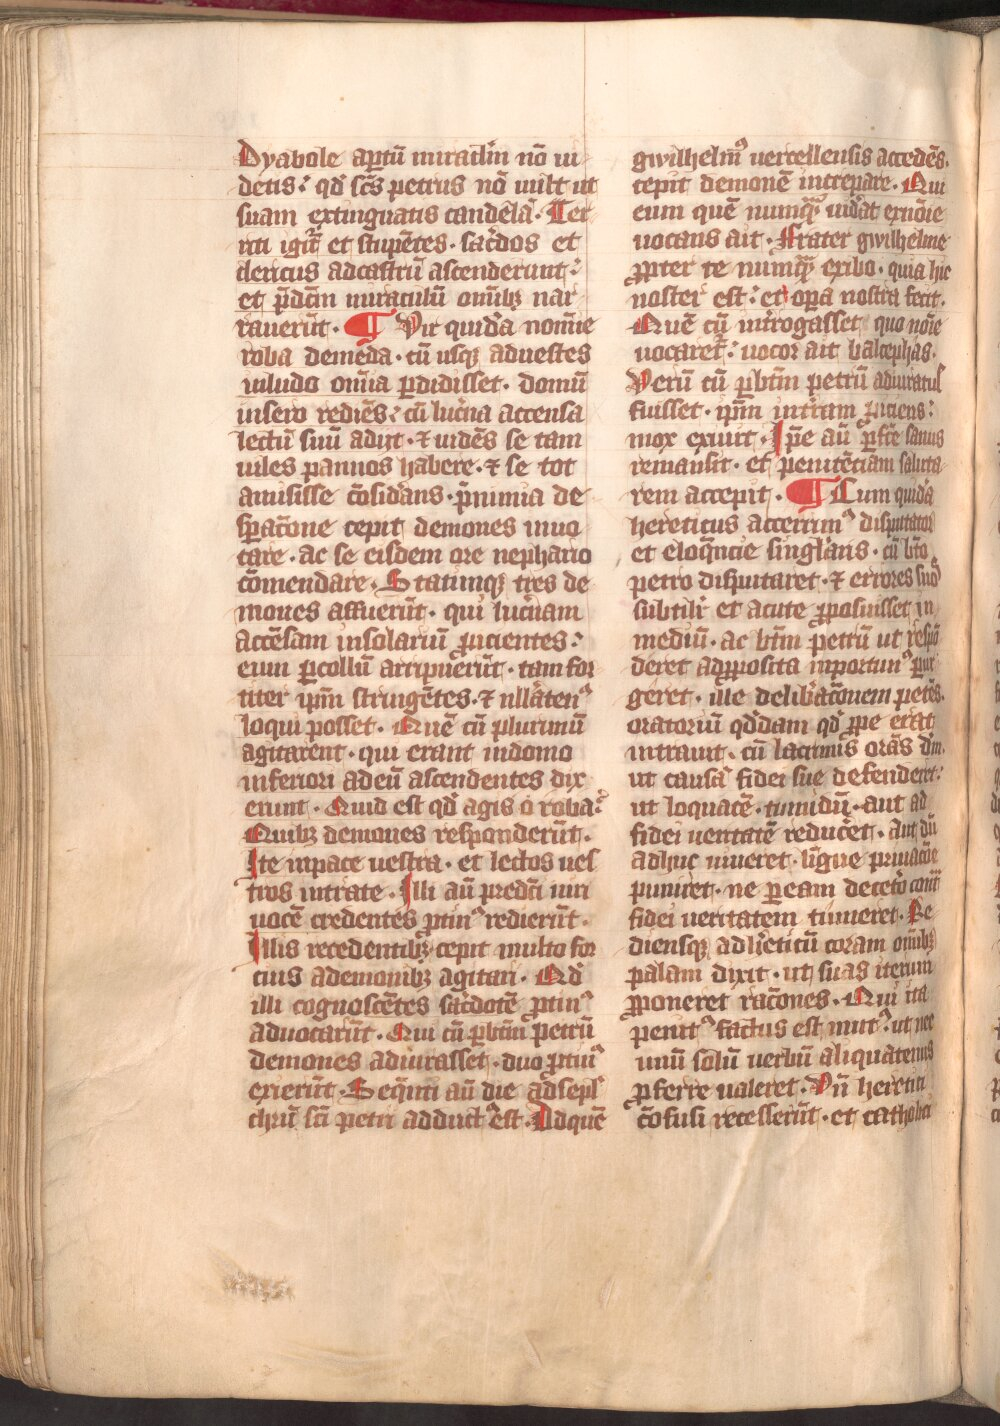 Dyabole ap̱tū miraculm̄ nō ui
detis : qd̄ scs̄ petrus nō uult ut
suam extinguatis candelā · Ter
riti igit̄ et stupētes · sac̄dos et
clericus adcastrū ascenderunt :
et p̄dcm̄ miraculū omībꝫ nar
rauerūt · ¶ Vir quidā nomīe
roba demeda · cū usqꝫ aduestes
inludo omīa ꝑdidisset · domū
insero rediēs : cū luc̄na accensa
lectū suū adijt · ⁊ uidēs se tam
uiles pannos habere · ⁊ se tot
amisisse cōsid̄ans · p̄nimia de
sperac̄one cepit demones inuo
care · ac se eisdem ore nephario
cōmendare · Statimqꝫ tres de
mones affuerūt · qui luc̄nam
accēsam insolariū ꝓicientes :
eum ꝑcollū arripuerūt · tam for
titer ipm̄ stringētes · ⁊ nllāten⁹
loqui posset · Quē cū plurimū
agitarent · qui erant indomo
inferiori adeū ascendentes dix
erunt · Quid est qd̄ agis o roba :
Quibꝫ demones responderūt ·
Ite inpace uestra · et lectos ues
tros intrate · Illi aū predc̄i uiri
uocē credentes ꝓtin⁹ redierūt ·
Illis recedentibꝫ cepit multo for
cius ademonibꝫ agitari · Qd̄
illi cognoscētes sac̄dotē ꝓtin⁹
aduocarūt · Qui cū ꝑbtm̄ petrū
demones adiurasset · duo ꝓtin⁹
exierūt · Seq̄nti aū die adsepl̄
chrū sc̄i petri adduct⁹ est · Adquē
gwilhelm⁹ uercellensis accedēs ·
cepit demonē increpare · Qui
eum quē numqͣ uid̄at exnōie
uocans ait · Frater gwilhelme
ꝓpter te numqͣ exibo · quia hic
noster est : et oꝑa nostra fecit ·
Quē cū int̄rogasset quo nōie
uocaret̄ : uocor ait balcephas ·
Verū cū ꝑbtm̄ petrū adiuratus
fuisset · ipm̄ int̄ram ꝓiciens :
mox exiuit · Ip̄e aū ꝑfc̄e sanus
remansit · et penitēciam saluta
rem accepit · ¶ Cum quidā
hereticus accerrim⁹ disputator
et eloq̄ncie singl̄aris · cū bt̄o
petro disputaret · ⁊ errores suos
subtilit̄ et acute ꝓposuisset in
mediū · ac btm̄ petrū ut respō
deret adꝓposita inportun⁹ ꝑur
geret · ille delib̄ac̄onem petēs ·
oratoriū qd̄dam qd̄ ꝓpe erat
intrauit · cū lacrimis orās dm̄ ·
ut causā fidei sue defenderet :
ut loquacē · tumidū · aut ad
fidei ueritatē reduc̄et · aut dū
adhuc uiueret · līgue priuac̄oe
puniret · ne ꝑeam decet̄o cont̄
fidei ueritatem tumeret · Re
diensqꝫ adh̄eticū coram omībꝫ
palam dixit · ut suas iterum
ꝓponeret rac̄ones · Qui ita
penit⁹ factus est mut⁹ · ut nec
unū solū uerbū aliquatenus
ꝓferre ualeret · Vn̄ heretici
cōfusi recesserūt · et catholici